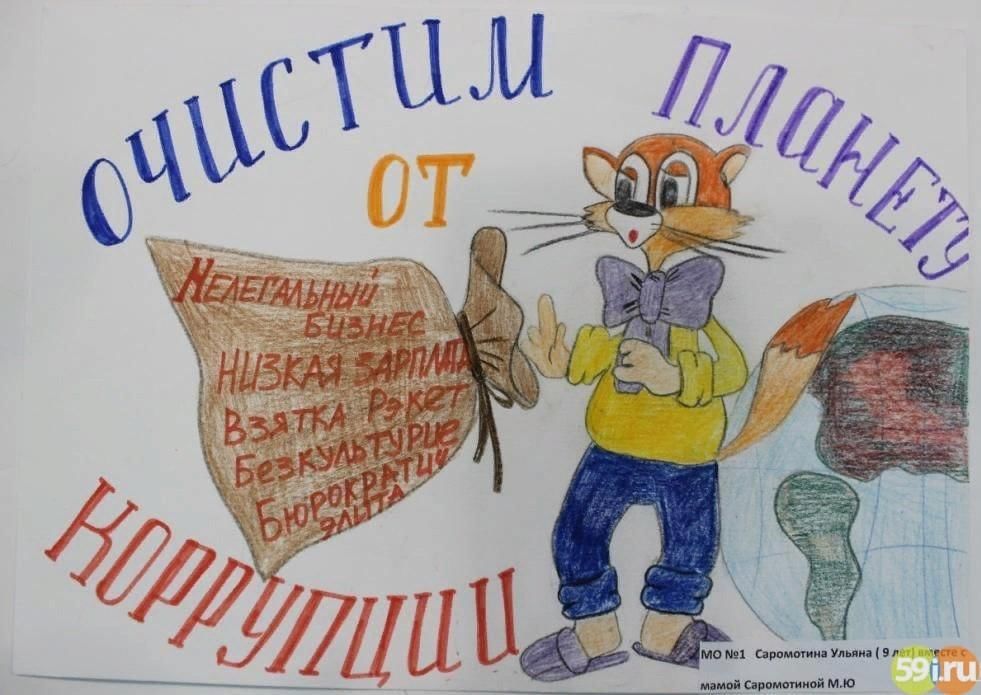 ОЧИСТИМ
ПЛАНЕТУ
ОТ
КОРРУПЦИИ
НЕЛЕГАЛЬНЫЙ
БИЗНЕС
НИЗКАЯ ЗАРПЛАТА
ВЗЯТКА РЭКЕТ
БЕЗКУЛЬТУРИЕ
БЮРОКРАТИЧ
ЭЛИТА
МО №1 Саромотина Ульяна ( 9 лет) вместе с
мамой Саромотиной М.Ю
59i.ru